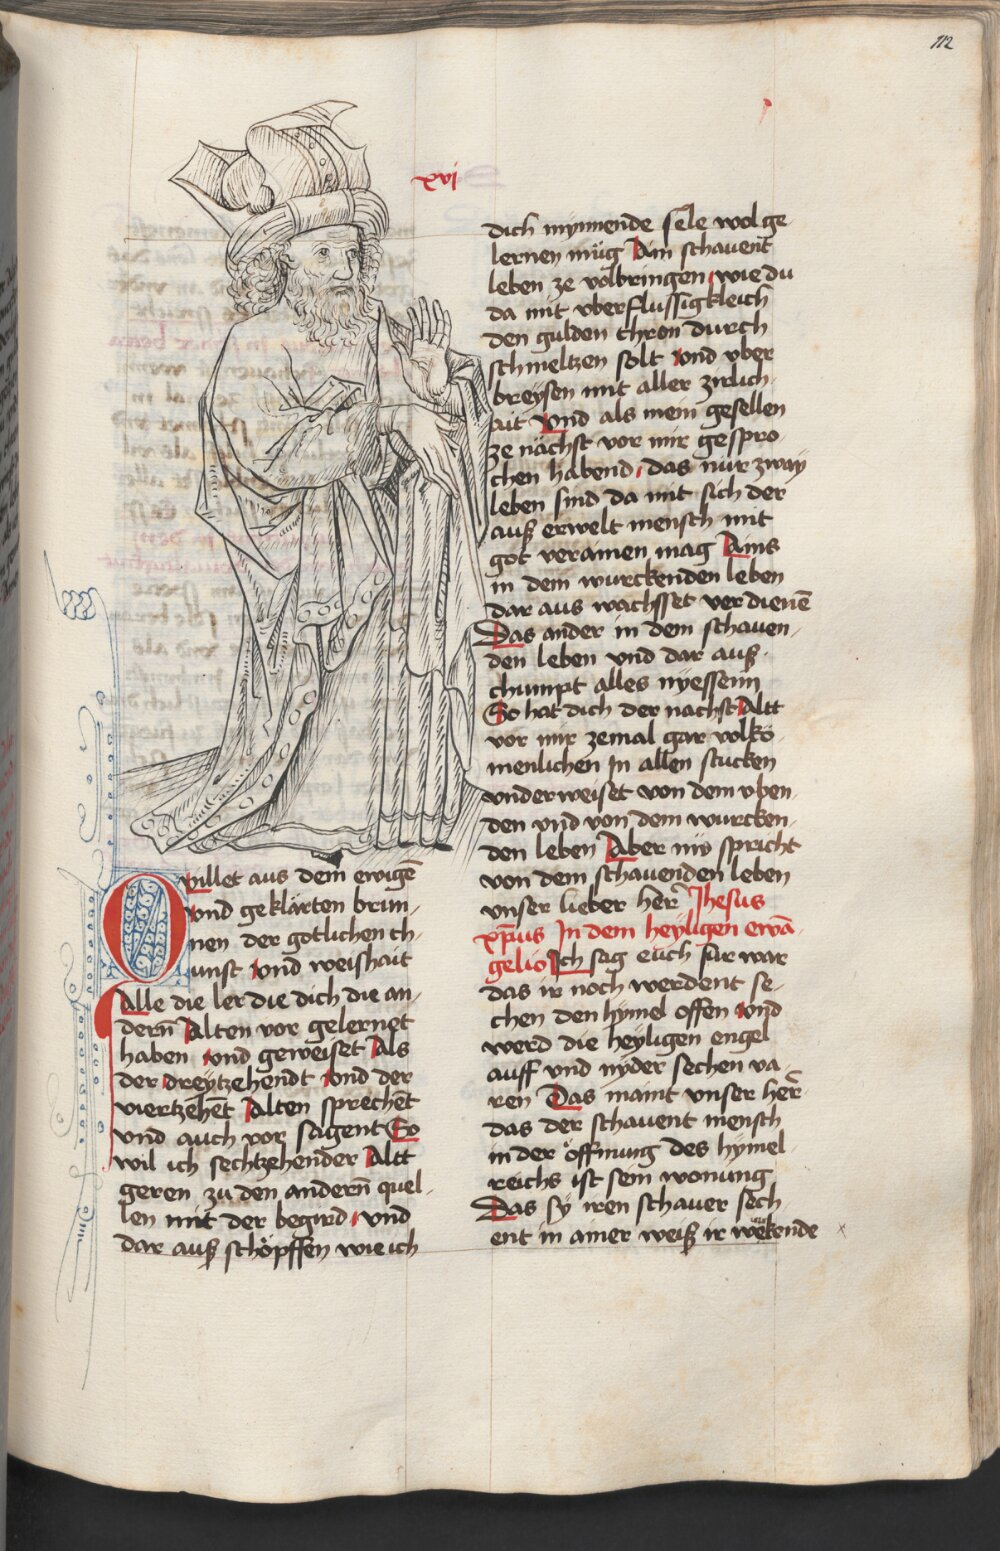 112
xvi
Quillet aus dem ewigē
vnd geklarten brun-
nen der gotlichen ch-
unst vnd weishait
Alle die ler die dich die an-
dern̄ Alten vor gelernet
haben vnd geweiset Als
der dreytzehendt vnd der
viertzehēt Alten sprechēt
vnd auch vor sagent So
wil ich sechtzehender Altt
geren zu den andern̄ quel-
len mit der begird vnd
dar auß schöpffen wie ich
dich mynnende sele wol ge
lernen müg Ain schauent
leben ze volbringen wie du
da mit vberflussigkleich
den gulden thron durch
schmeltzen solt vnd vber
breysen mit aller zirlich-
ait Vnd als mein gesellen
ze nächst vor mir gespro-
chen habend das nür zway
leben sind da mit sich der
auß erwelt mensch mit
got verainen mag Ains
in dem wurckenden leben
dar aus wachsset verdienē
Das ander in dem schauen-
den leben vnd dar auß
chumpt alles nyessenn
So hat dich der nachst Altt
vor mir zemal gar volkō-
menlichen In allen stucken
vnderweiset von dem vben-
den vnd von dem wurcken-
den leben Aber nw spricht
von dem schauenden leben
vnser lieber her Jhesus
xp̄us In dem heyligen ewā-
gelio Ich sag eüch fur war
das ir noch werdent se-
chen den hymel offen vnd
werd die heyligen engel
auff vnd nyder sechen va-
ren Das maint vnser her
das der schauent mensch
in der öffnung des hymel-
reichs ist sein wonung
Das sy iren schauer sech-
ent in ainer weiß ir wekende